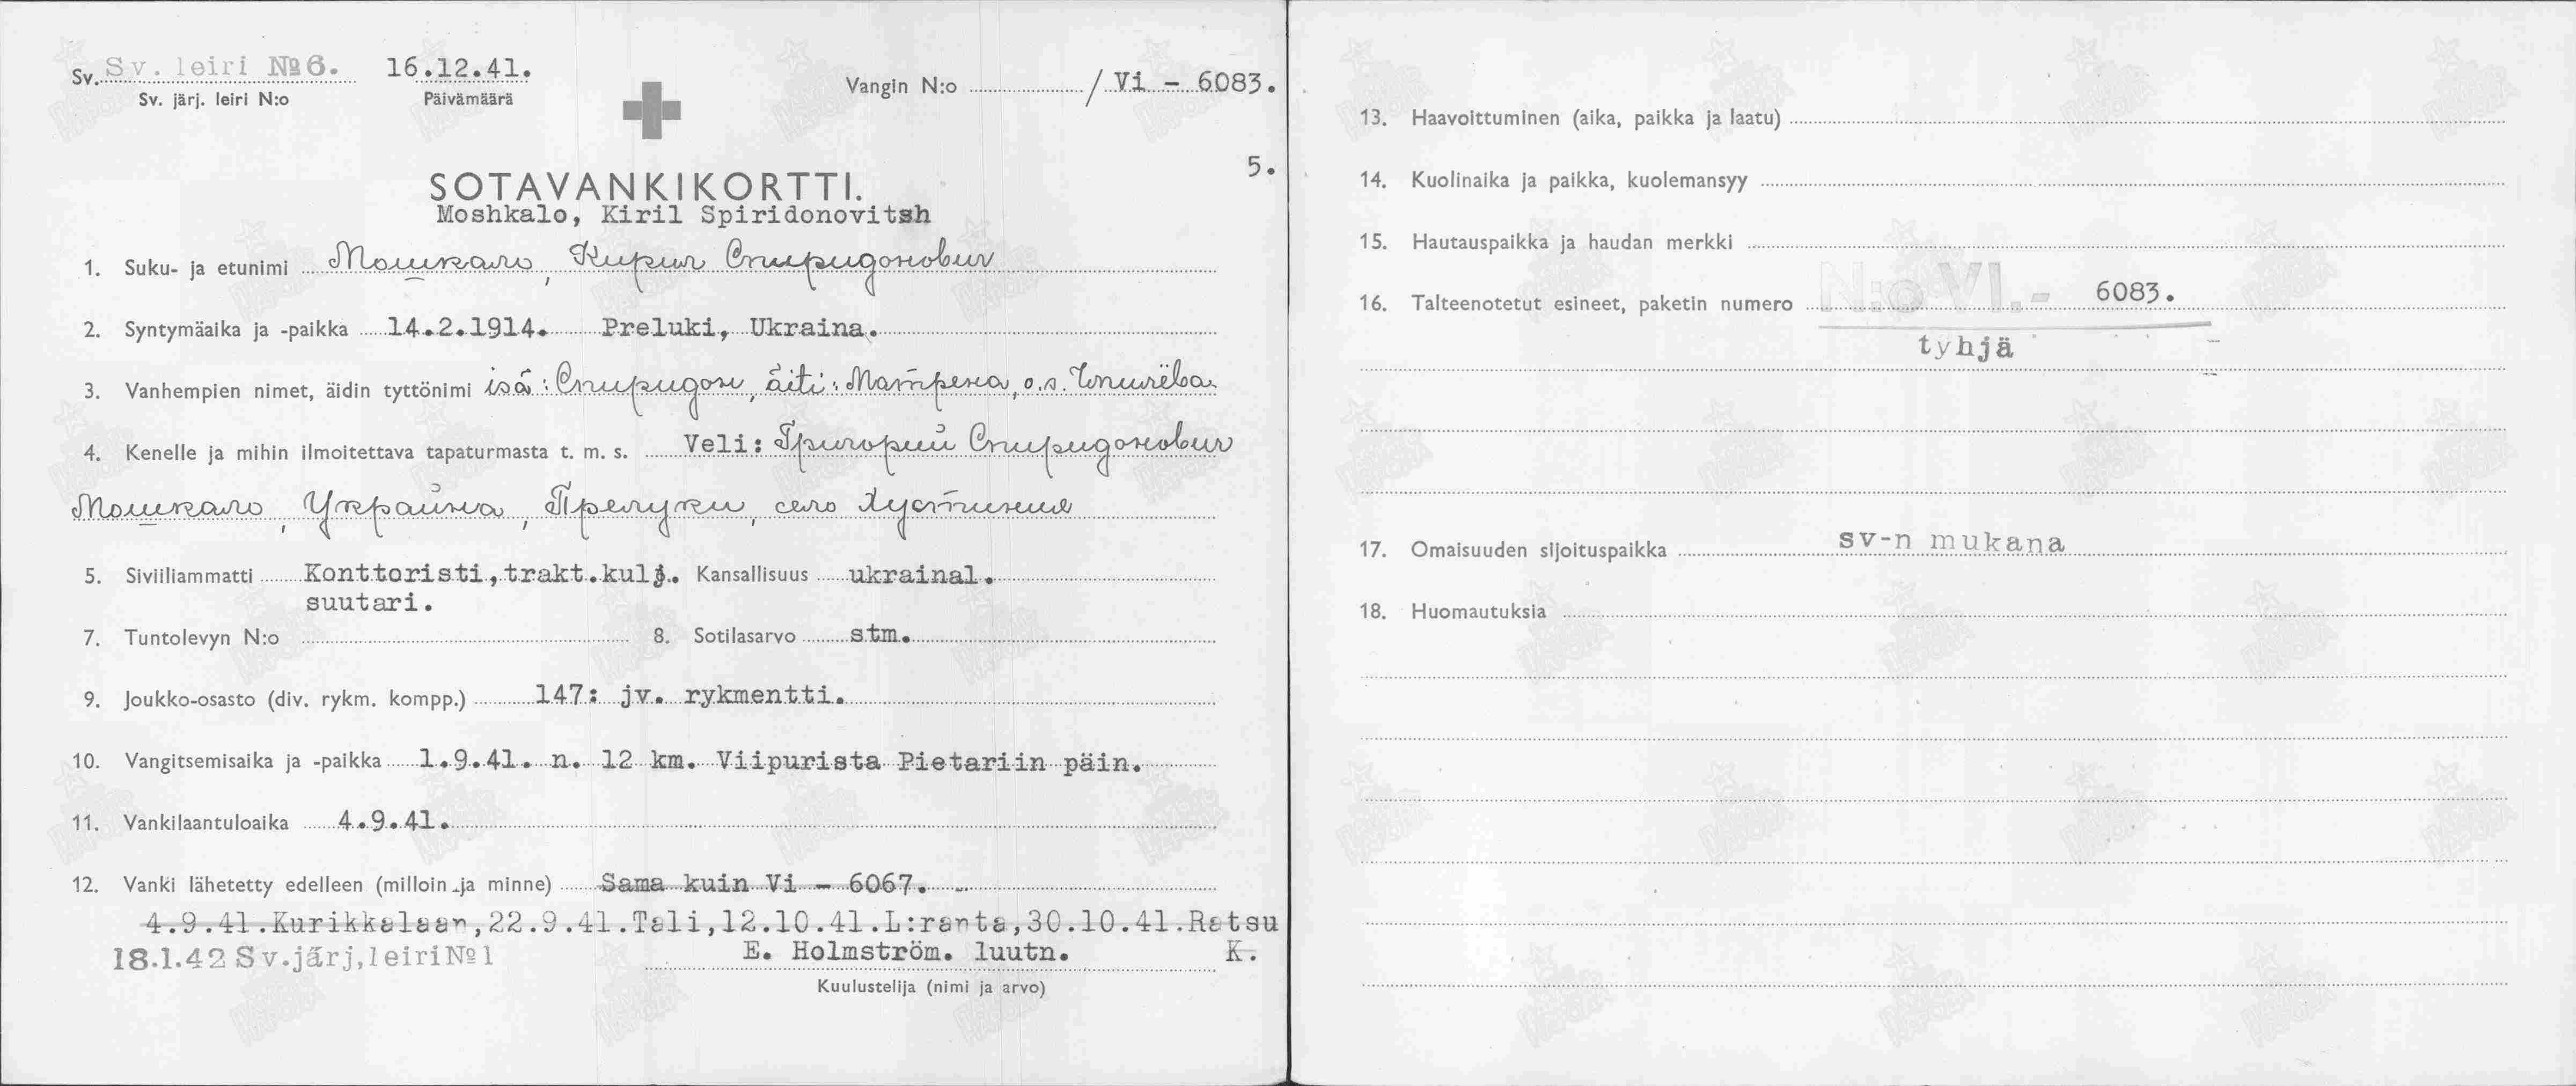 Sv. Sv. leiri № 6. 16.12.41. Vangin N:o / Vi - 6083.
Sv. järj. leiri N:o Päivämäärä
5.
SOTAVANKIKORTTI.
Moshkalo, Kiril Spiridonovitsh
1. Suku- ja etunimi Мошкало, Кирил Спиридонович
2. Syntymäaika ja -paikka 14.2.1914. Preluki, Ukraina.
3. Vanhempien nimet, äidin tyttönimi isä: Спиридон, äiti: Матрена, o.s.
4. Kenelle ja mihin ilmoitettava tapaturmasta t. m. s. Veli: Григорий Спиридонович
Мошкало, Украйна, Прелуки, село
5. Siviiliammatti Konttoristi, trakt.kulj. Kansallisuus ukrainal.
suutari.
7. Tuntolevyn N:o 8. Sotilasarvo stm.
9. Joukko-osasto (div. rykm. kompp.) 147: jv. rykmentti.
10. Vangitsemisaika ja -paikka 1.9.41. n. 12 km. Viipurista Pietariin päin.
11. Vankilaantuloaika 4.9.41.
12. Vanki lähetetty edelleen (milloin ja minne) Sama kuin Vi - 6067.
4.9.41.Kurikkalaan,22.9.41.Tali,12.10.41.L:ranta,30.10.41.Ratsu
18.1.42 Sv.järj,leiri№1 E. Holmström. luutn. K.
Kuulustelija (nimi ja arvo)
13. Haavoittuminen (aika, paikka ja laatu)
14. Kuolinaika ja paikka, kuolemansyy
15. Hautauspaikka ja haudan merkki
16. Talteenotetut esineet, paketin numero N:o VI.- 6083.
tyhjä
17. Omaisuuden sijoituspaikka sv-n mukana
18. Huomautuksia